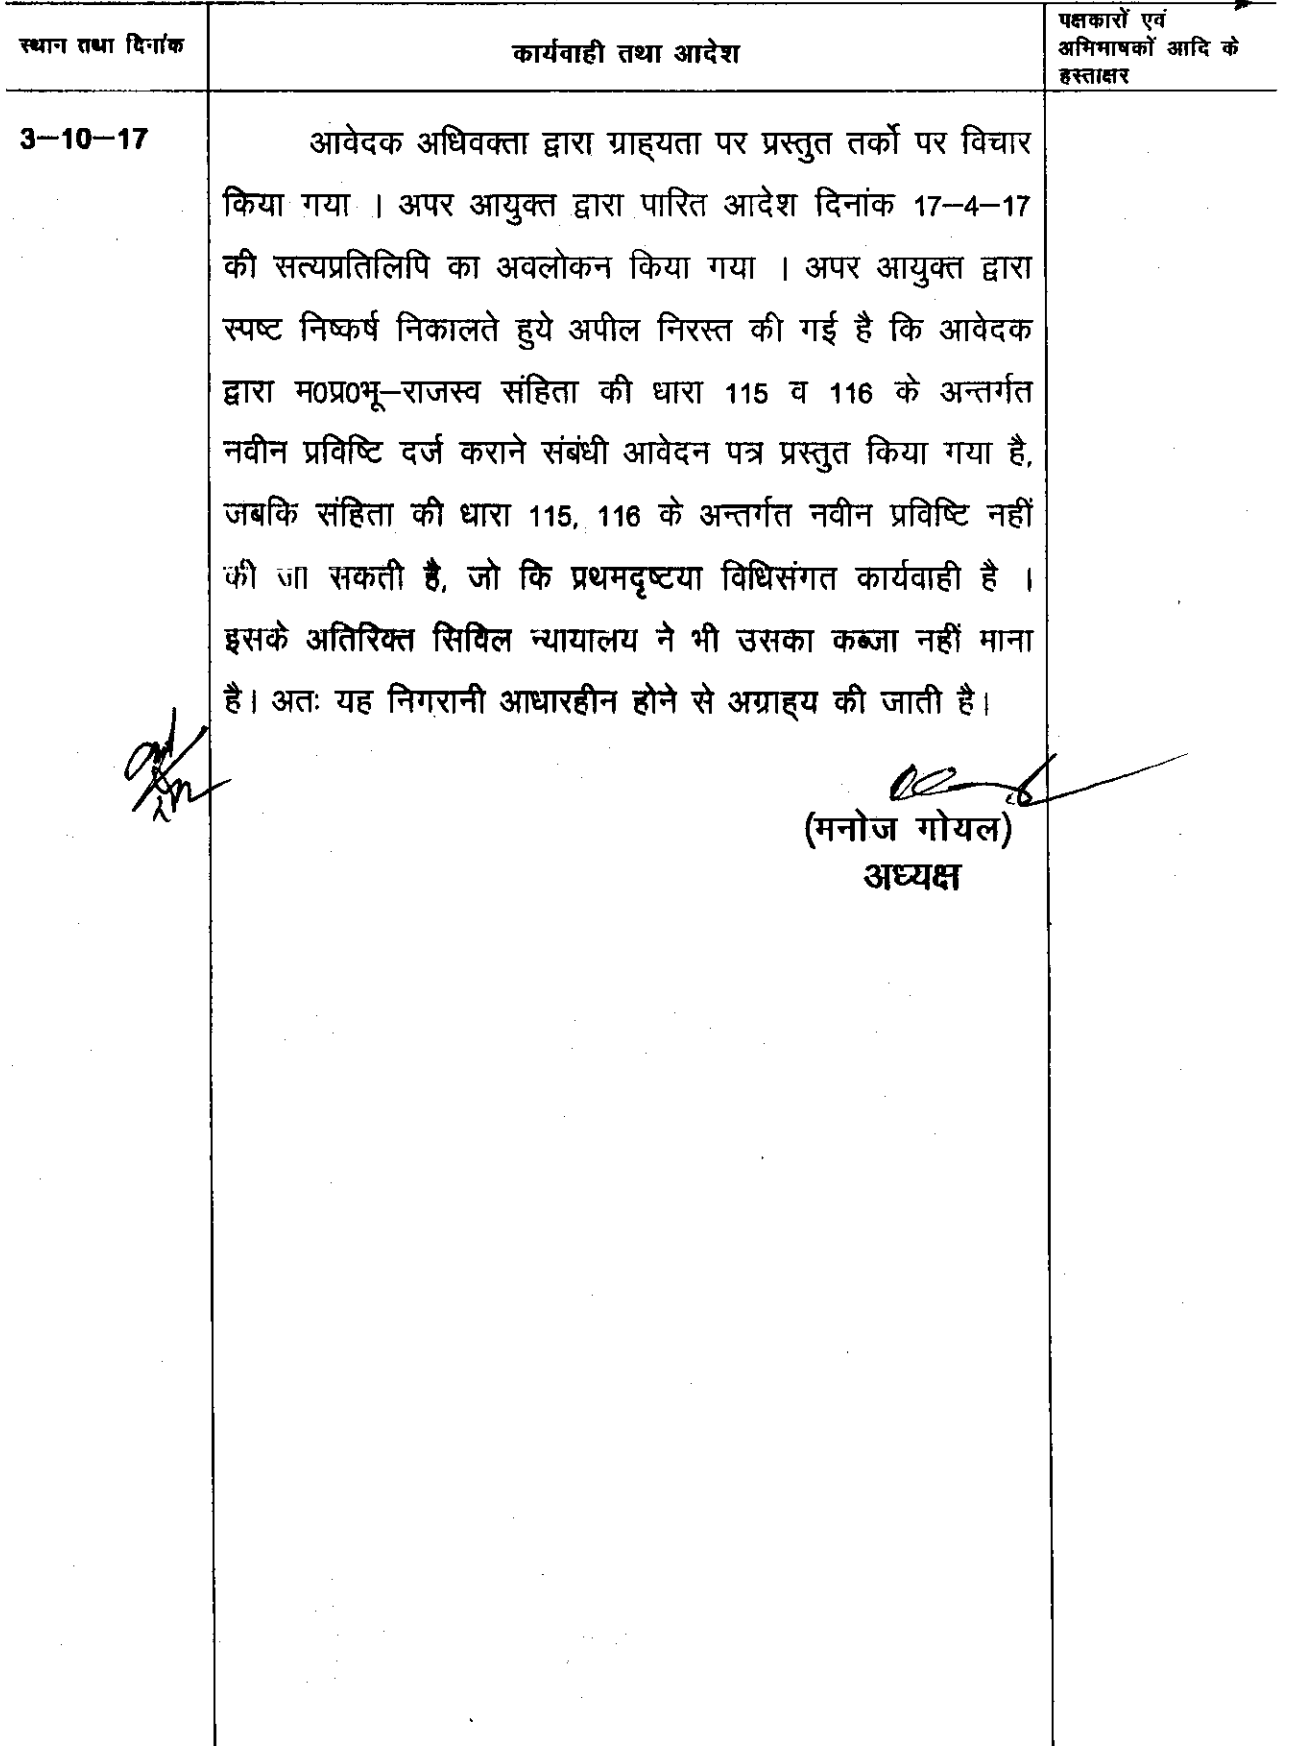 स्थान तथा दिनांक
कार्यवाही तथा आदेश
पक्षकारों एवं
अभिभाषकों आदि के
हस्ताक्षर
3–10–17
आवेदक अधिवक्ता द्वारा ग्राह्यता पर प्रस्तुत तर्कों पर विचार
किया गया । अपर आयुक्त द्वारा पारित आदेश दिनांक 17–4–17
की सत्यप्रतिलिपि का अवलोकन किया गया । अपर आयुक्त द्वारा
स्पष्ट निष्कर्ष निकालते हुये अपील निरस्त की गई है कि आवेदक
द्वारा म0प्र0भू–राजस्व संहिता की धारा 115 व 116 के अन्तर्गत
नवीन प्रविष्टि दर्ज कराने संबंधी आवेदन पत्र प्रस्तुत किया गया है,
जबकि संहिता की धारा 115, 116 के अन्तर्गत नवीन प्रविष्टि नहीं
की जा सकती है, जो कि प्रथमदृष्टया विधिसंगत कार्यवाही है ।
इसके अतिरिक्त सिविल न्यायालय ने भी उसका कब्जा नहीं माना
है। अतः यह निगरानी आधारहीन होने से अग्राह्य की जाती है।
(मनोज गोयल)
अध्यक्ष